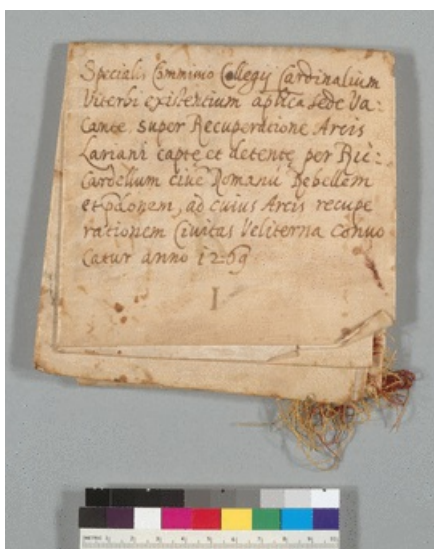 Specialis Commissio Collegij Cardinalium
Viterbi existentium aplica sede Va:
cante super Recuperatione Arcis
Lariani capte et detente per Ric:
Cardellum ciue Romanū Rebellem
et pdonem, ad cuius Arcis recupe
rationem Ciuitas Veliterna conuo
catur anno 1269
I